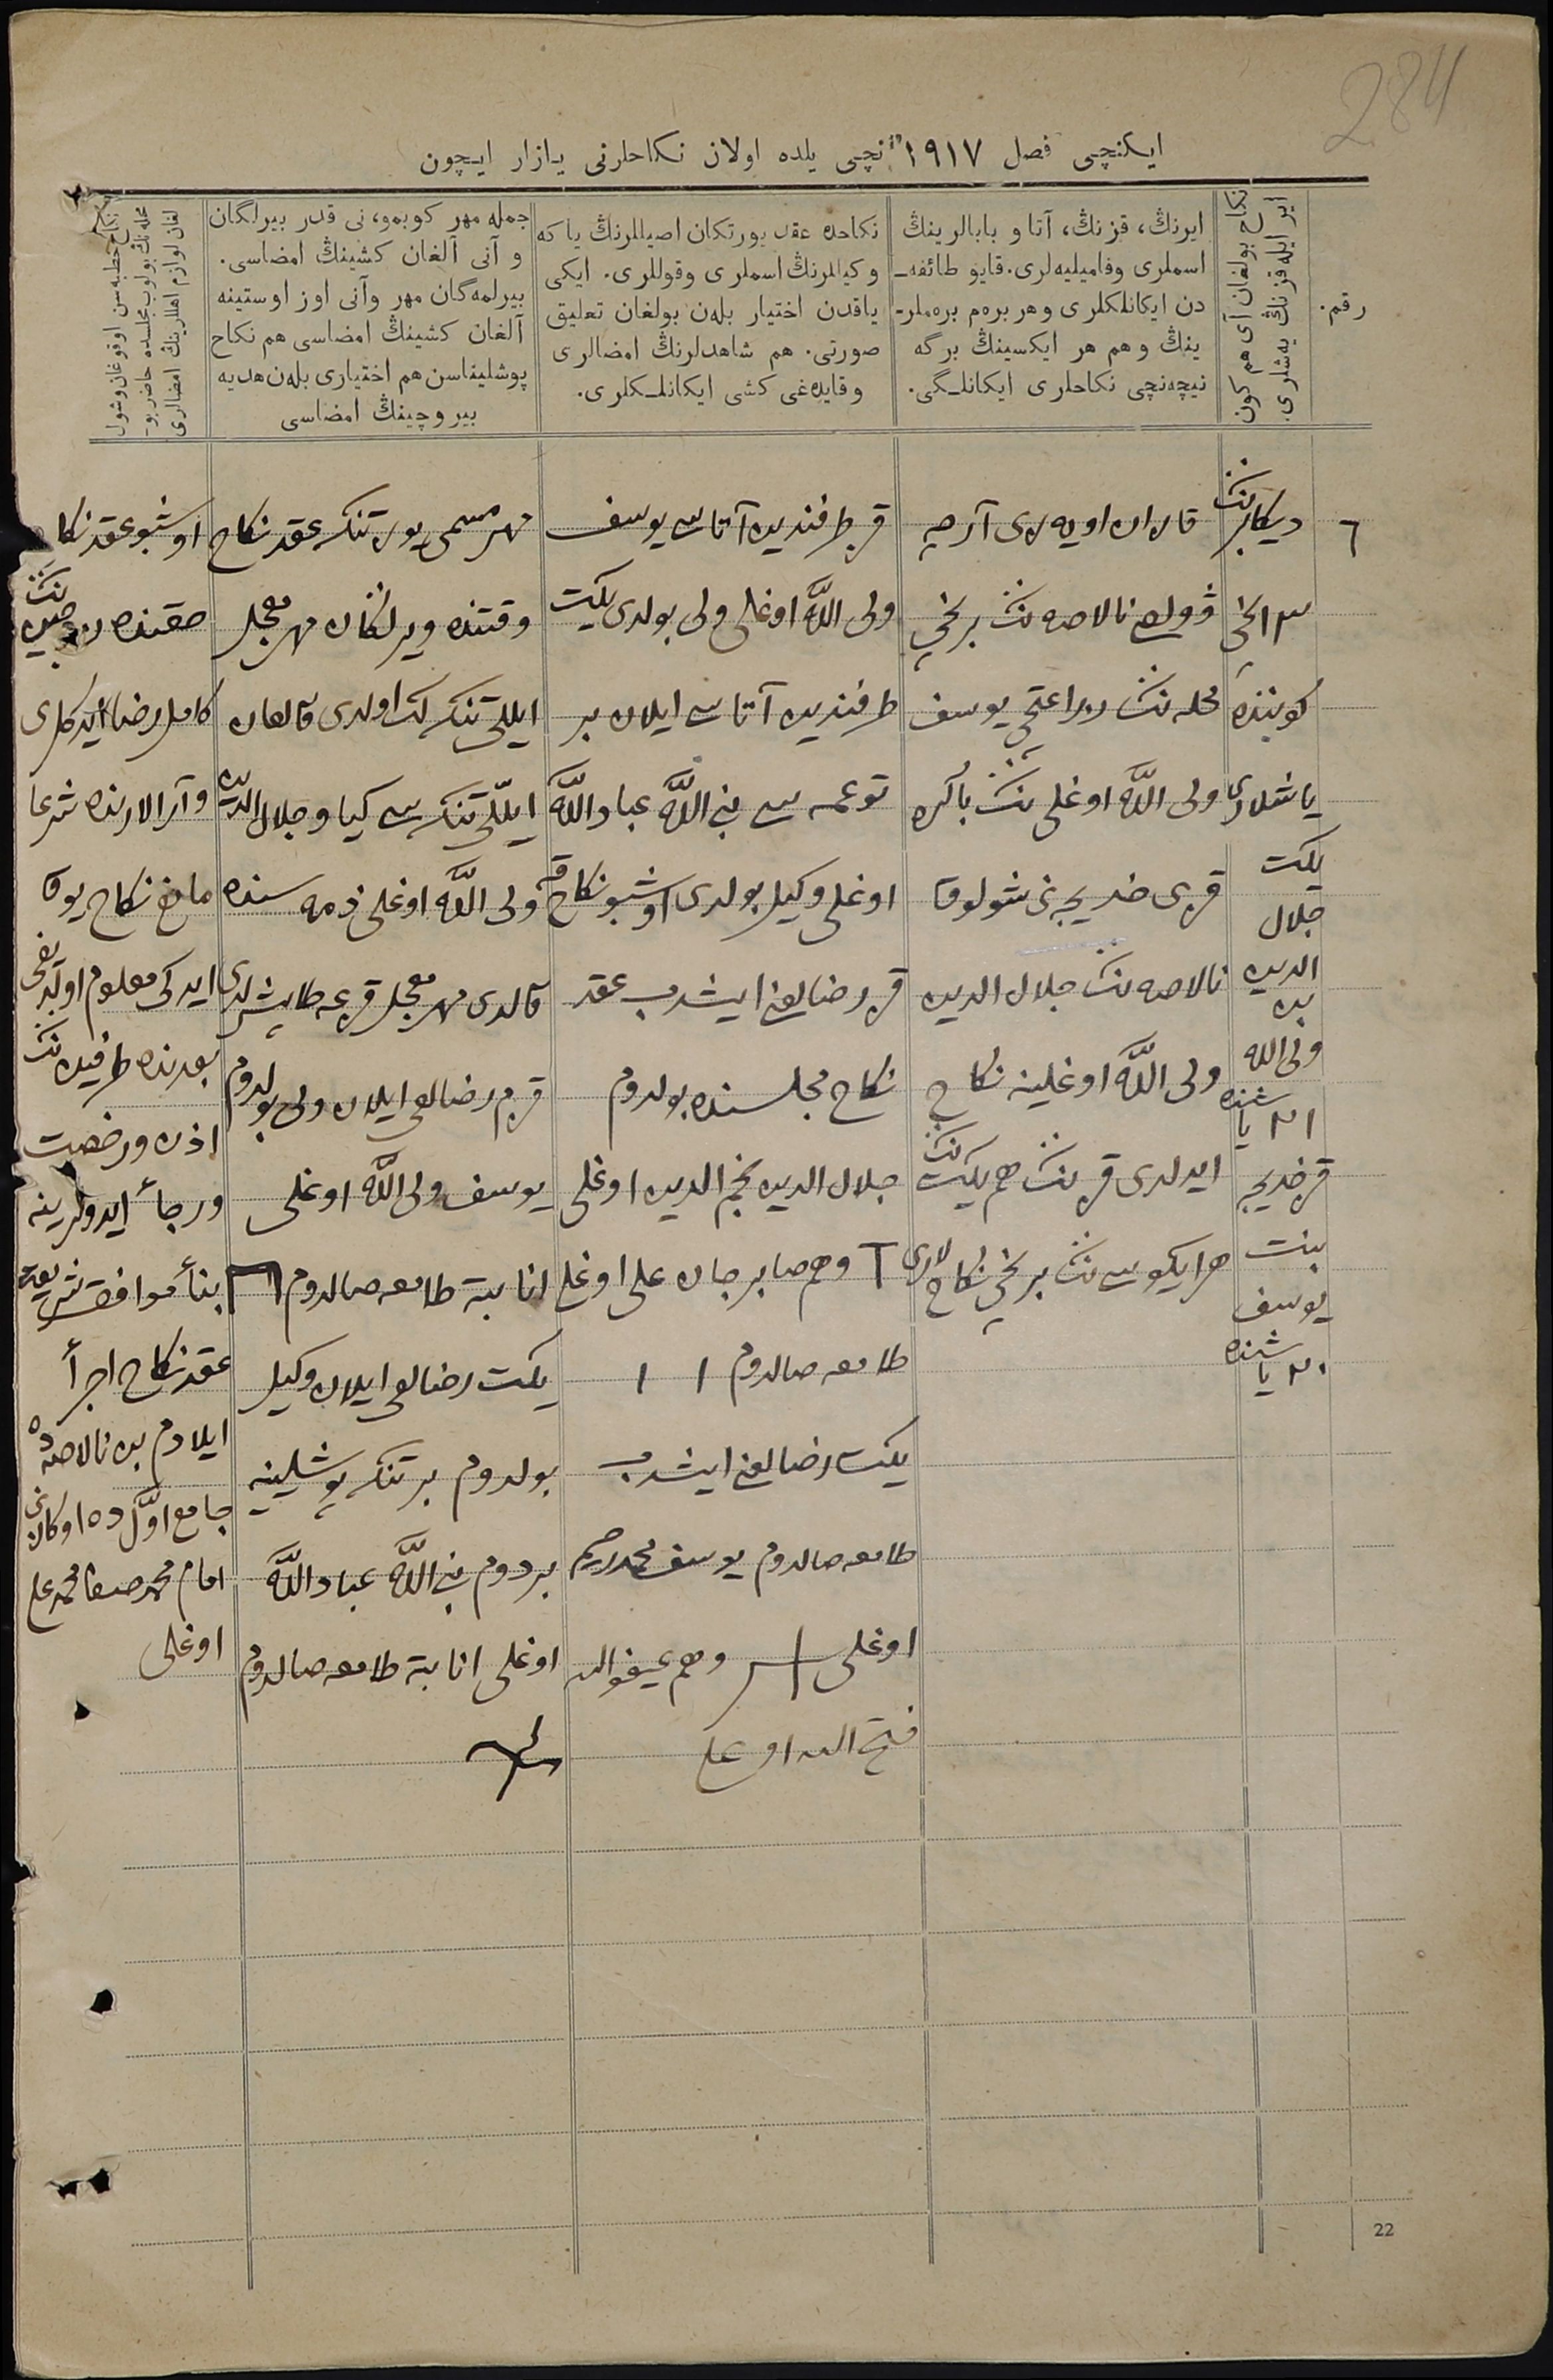 284
ایکنچی فصل ١٩١٧ نچی یلده اولان نکاحلرنی یازار ایچون
رقم.
نکاح بولغان آی هم کون
ایر ایله قزنڭ یەشلری.
ایرنڭ، قزنڭ، آتا و بابالرینڭ
اسملری وفامیلیەلری. قایو طائفە-
دن ایکانلکلری و هر برەم برەملر-
ینڭ و هم هر ایکسینڭ برگە
نیچەنچی نکاحلری ایکانلـگی.
نکاحده عقد یورتکان اصیللرنڭ یا که
وکیللرنڭ اسملری وقوللری. ایکی
یاقدن اختیار بلەن بولغان تعلیق
صورتی. هم شاهدلرنڭ امضالری
وقایدەغی کشی ایکانلـکلری.
جمله مهر کوبمو، نی قدر بیرلگان
و آنی آلغان کشینڭ امضاسی.
بیرلمەگان مهر وآنی اوز اوستینه
آلغان کشینڭ امضاسی هم نکاح
پوشلیناسن هم اختیاری بلەن هدیه
بیروچینڭ امضاسی
نکاح خطبەسن اوقوغان وشول
محلەنڭ بولوب مجلسده حاضر بو-
لغان لوازم اهللرینڭ امضالری
٦
دیکابرنڭ
١٣ نچی
کوننده
یاشلاری
یکت
جلال
الدین
بن
ولی الله
٢١ یاشنده
قز خدیجه
بنت
یوسف
٢٠ یاشنده
قازان اویەزی آرچه
ڤولصی نالاصه نڭ برنچی
محله نڭ یوسف
ولی اللّه اوغلی نڭ باکره
قزی خدیجه نی شولوق
نالاصه نڭ جلال الدین
ولی اللّه اوغلینه نکاح
ایدلدی قزنڭ هم یکت نڭ
هر ایکوسی نڭ برنچی نکاحلاری
قز طرفندین آتاسی یوسف
ولی اللّه اوغلی ولی بولدی یکت
طرفندین آتاسی ایلان بر
توغمه سی نبی اللّه عباد اللّه
اوغلی وکیل بولدی اوشبو نکاحقه
قز رضالغن ایشدب عقد
نکاح مجلسنده بولدوم
جلال الدین نجم الدین اوغلی
T وهم صابرجان علی اوغلی
طامغه صالدوم ١ ١
یکت رضالغن ایشدب
طامغه صالدوم یوسف محمدرحیم
اوغلی وهم عیفوالله
فتح الله اوغلی
مهر مسمی یوز تنکه عقد نکاح
وقتنده ویرلکان مهر معجل
ایللی تنکه لک اولدی قالغان
ایللی تنکه سی کیاو جلال الدین
ولی اللّه اوغلی ذمه سنده
قالدی مهر معجل قزغه طابشرلدی
قزم رضالغی ایلان ولی بولدوم
یوسف ولی اللّه اوغلی
انابة طامغه صالدوم
یکت رضالغی ایلان وکیل
بولدوم بر تنکه پوشلینه
بردوم نبی اللّه عباد اللّه
اوغلی انابة طامغه صالدوم
اوشبو عقد نکاح
حقنده زوجین نڭ
کامل رضا ایدکلری
وآرالارنده شرعا
مانع نکاح یوق
ایدکی معلوم اولدیغی
بعدنده طرفین نڭ
اذن ورخصت
ورجاء ایدولرینه
بناءً موافق شریعت
عقد نکاح اجراءً
ایلادم بن نالاصه ده
جامع اوّل ده اوکازنی
امام محمد صفا محمد علی
اوغلی
22